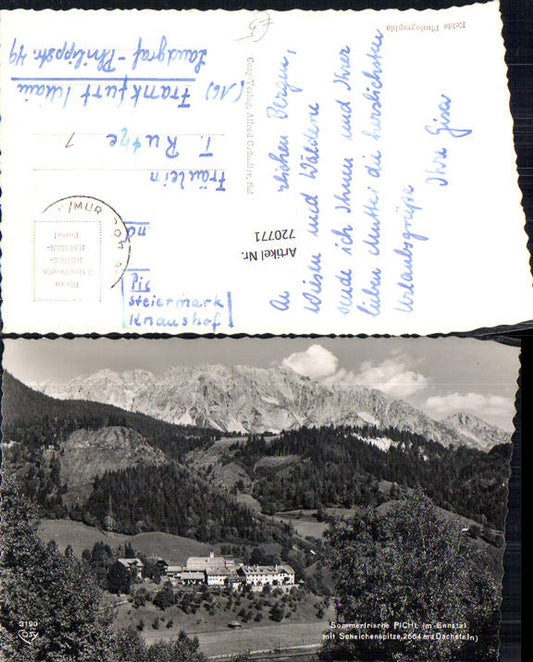 Echte Photographie
An
lichen Bergen,
Wiesen und Wäldern
sende ich Ihnen und Ihrer
lieben Mutter die herzlichsten
Urlaubsgrüße
Ihre Gisa
Cosy-Verlag, Alfred Gründler, Sal
Artikel Nr.
720771
Fräulein
T. Rutze
(16) Frankfurt Main
Landgraf-Philippstr. 49
/MUR
Steiermark
Knaushof
3190
COSY
Sommerfrische PICHL im Ennstal
mit Scheichenspitze, 2664 m (Dachstein)